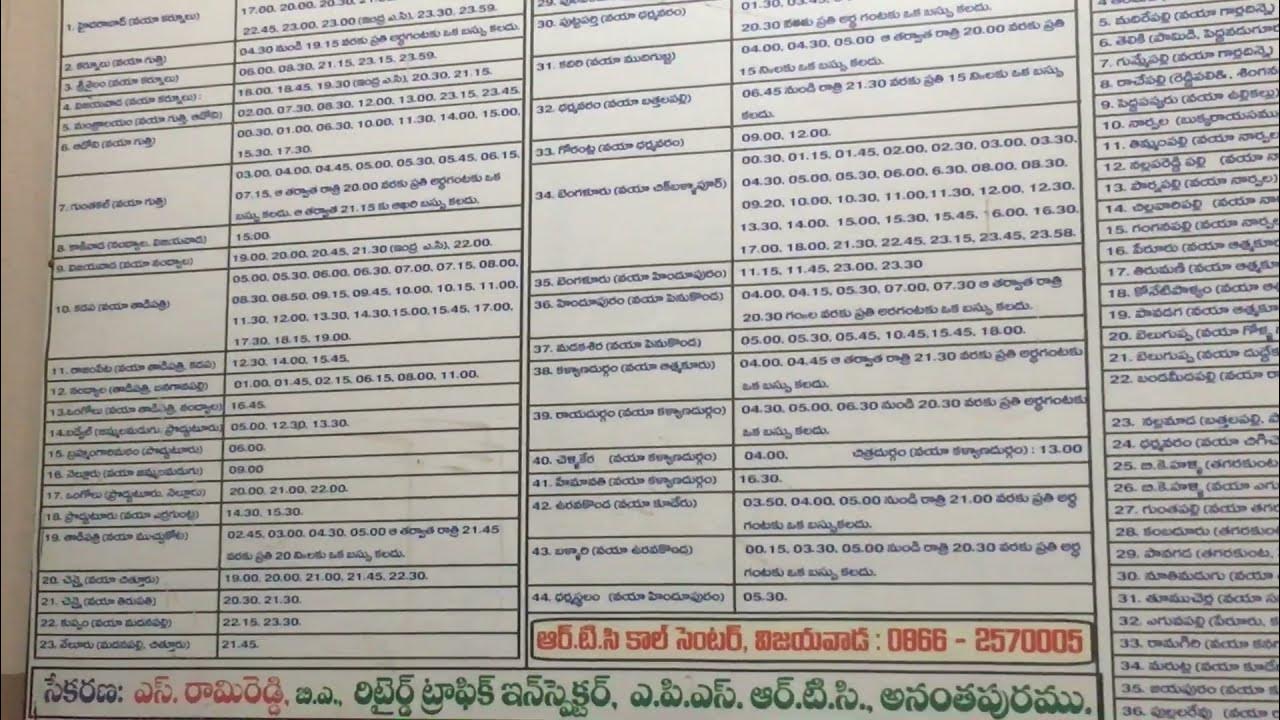 1. హైదరాబాద్ (వయా కర్నూలు)
17.00. 20.00. 20.30.
22.45. 23.00. 23.00 (ఇంద్ర ఎ.సి). 23.30. 23.59.
2. కర్నూలు (వయా గుత్తి)
04.30 నుండి 19.15 వరకు ప్రతి అర్ధగంటకు ఒక బస్సు కలదు.
3. శ్రీశైలం (వయా కర్నూలు)
06.00. 08.30. 21.15. 23.15. 23.59.
4. విజయవాడ (వయా కర్నూలు) :
18.00. 18.45. 19.30 (ఇంద్ర ఎ.సి). 20.30. 21.15.
5. మంత్రాలయం (వయా గుత్తి, ఆదోని)
02.00. 07.30. 08.30. 12.00. 13.00. 23.15. 23.45.
6. ఆదోని (వయా గుత్తి)
00.30. 01.00. 06.30. 10.00. 11.30. 14.00. 15.00.
15.30. 17.30.
7. గుంతకల్ (వయా గుత్తి)
03.00. 04.00. 04.45. 05.00. 05.30. 05.45. 06.15.
07.15. ఆ తర్వాత రాత్రి 20.00 వరకు ప్రతి అర్ధగంటకు ఒక
బస్సు కలదు. ఆ తర్వాత 21.15 కు ఆఖరి బస్సు కలదు.
8. కాకినాడ (నంద్యాల, విజయవాడ)
15.00.
9. విజయవాడ (వయా నంద్యాల)
19.00. 20.00. 20.45. 21.30 (ఇంద్ర ఎ.సి). 22.00.
10. కడప (వయా తాడిపత్రి)
05.00. 05.30. 06.00. 06.30. 07.00. 07.15. 08.00.
08.30. 08.50. 09.15. 09.45. 10.00. 10.15. 11.00.
11.30. 12.00. 13.30. 14.30.15.00.15.45. 17.00.
17.30. 18.15. 19.00.
11. రాజంపేట (వయా తాడిపత్రి, కడప)
12.30. 14.00. 15.45.
12. నంద్యాల (తాడిపత్రి, బనగానపల్లి)
01.00. 01.45. 02.15. 06.15. 08.00. 11.00.
13.ఒంగోలు (వయా తాడిపత్రి, నంద్యాల)
16.45.
14.బద్వేల్ (జమ్మలమడుగు, ప్రొద్దుటూరు)
05.00. 12.30. 13.30.
15. బ్రహ్మంగారిమఠం (ప్రొద్దుటూరు)
06.00.
16. నెల్లూరు (వయా జమ్మలమడుగు)
09.00
17. ఒంగోలు (ప్రొద్దుటూరు, నెల్లూరు)
20.00. 21.00. 22.00.
18. ప్రొద్దుటూరు (వయా ఎర్రగుంట్ల)
14.30. 15.30.
19. తాడిపత్రి (వయా ముచ్చుకోట)
02.45. 03.00. 04.30. 05.00 ఆ తర్వాత రాత్రి 21.45
వరకు ప్రతి 20 ని॥లకు ఒక బస్సు కలదు.
20. చెన్నై (వయా చిత్తూరు)
19.00. 20.00. 21.00. 21.45. 22.30.
21. చెన్నై (వయా తిరుపతి)
20.30. 21.30.
22. కుప్పం (వయా మదనపల్లి)
22.15. 23.30.
23. వేలూరు (మదనపల్లి, చిత్తూరు)
21.45.
30. పుట్టపర్తి (వయా ధర్మవరం)
01.30. 03.45.
20.30 వరకు ప్రతి అర్ధ గంటకు ఒక బస్సు కలదు.
31. కదిరి (వయా ముదిగుబ్బ)
04.00. 04.30. 05.00 ఆ తర్వాత రాత్రి 20.00 వరకు ప్రతి
15 ని॥లకు ఒక బస్సు కలదు.
32. ధర్మవరం (వయా బత్తలపల్లి)
06.45 నుండి రాత్రి 21.30 వరకు ప్రతి 15 ని॥లకు ఒక బస్సు
కలదు.
33. గోరంట్ల (వయా ధర్మవరం)
09.00. 12.00.
34. బెంగళూరు (వయా చిక్‌బళ్ళాపూర్)
00.30. 01.15. 01.45. 02.00. 02.30. 03.00. 03.30.
04.30. 05.00. 05.30. 06.00. 6.30. 08.00. 08.30.
09.20. 10.00. 10.30. 11.00.11.30. 12.00. 12.30.
13.30. 14.00. 15.00. 15.30. 15.45. 16.00. 16.30.
17.00. 18.00. 21.30. 22.45. 23.15. 23.45. 23.58.
35. బెంగళూరు (వయా హిందూపురం)
11.15. 11.45. 23.00. 23.30
36. హిందూపురం (వయా పెనుకొండ)
04.00. 04.15. 05.30. 07.00. 07.30 ఆ తర్వాత రాత్రి
20.30 గం॥ల వరకు ప్రతి అరగంటకు ఒక బస్సు కలదు.
37. మడకశిర (వయా పెనుకొండ)
05.00. 05.30. 05.45. 10.45.15.45. 18.00.
38. కళ్యాణదుర్గం (వయా ఆత్మకూరు)
04.00. 04.45 ఆ తర్వాత రాత్రి 21.30 వరకు ప్రతి అర్ధగంటకు
ఒక బస్సు కలదు.
39. రాయదుర్గం (వయా కళ్యాణదుర్గం)
04.30. 05.00. 06.30 నుండి 20.30 వరకు ప్రతి అర్ధగంటకు
ఒక బస్సు కలదు.
40. చెళ్ళికేర (వయా కళ్యాణదుర్గం)
04.00. చిత్రదుర్గం (వయా కళ్యాణదుర్గం) : 13.00
41. హేమావతి (వయా కళ్యాణదుర్గం)
16.30.
42. ఉరవకొండ (వయా కూడేరు)
03.50. 04.00. 05.00 నుండి రాత్రి 21.00 వరకు ప్రతి అర్ధ
గంటకు ఒక బస్సుకలదు.
43. బళ్ళారి (వయా ఉరవకొండ)
00.15. 03.30. 05.00 నుండి రాత్రి 20.30 వరకు ప్రతి అర్ధ
గంటకు ఒక బస్సు కలదు.
44. ధర్మస్థలం (వయా హిందూపురం)
05.30.
ఆర్.టి.సి కాల్ సెంటర్, విజయవాడ : 0866 - 2570005
5. మదిరేపల్లి (వయా గార్లదిన్నె)
6. తెలికి (పామిడి, పెద్దవడుగూరు
7. గుమ్మేపల్లి (వయా గార్లదిన్నె)
8. రాచేపల్లి (రెడ్డిపల్లి,
9. పెద్దపప్పురు (వయా ఉల్లికల్లు)
10. నార్పల (బుక్కరాయసము
11. తిమ్మంపల్లి (వయా నార్పల
12. నల్లపరెడ్డి పల్లి (వయా నా
13. పొర్నపల్లి (వయా నార్పల)
14. చిల్లవారిపల్లి (వయా నా
15. గంగనపల్లి (వయా నార్ప
16. పేరూరు (వయా ఆత్మకూ
17. తిరుమణి (వయా ఆత్మకూ
18. కోనేటిపాళ్యం (వయా ఆ
19. పావగడ (వయా ఆత్మకూ
20. బెలుగుప్ప (వయా గోళ్ళ
21. బెలుగుప్ప (వయా దుద్దే
22. బండమీదపల్లి (వయా రా
23. నల్లమాడ (బత్తలపల్లి,
24. ధర్మవరం (వయా చిగిచ
25. బి.కె.హళ్ళి (తగరకుంట
26. బి.కె.హళ్ళి (వయా ఎగు
27. గుంతపల్లి (వయా తగర
28. కంబదూరు (తగరకుంట
29. పావగడ (తగరకుంట,
30. నూతిమడుగు (వయా
31. తూముచెర్ల (వయా
32. ఎగువపల్లి (పేరూరు,
33. రామగిరి (వయా కన
34. మరుట్ల (వయా కూడే
35. జయపురం (వయా
36. పుల్లలరేవు (వయా
సేకరణ: ఎస్. రామిరెడ్డి, బి.ఎ., రిటైర్డ్ ట్రాఫిక్ ఇన్‌స్పెక్టర్, ఎ.పి.ఎస్. ఆర్.టి.సి., అనంతపురము.